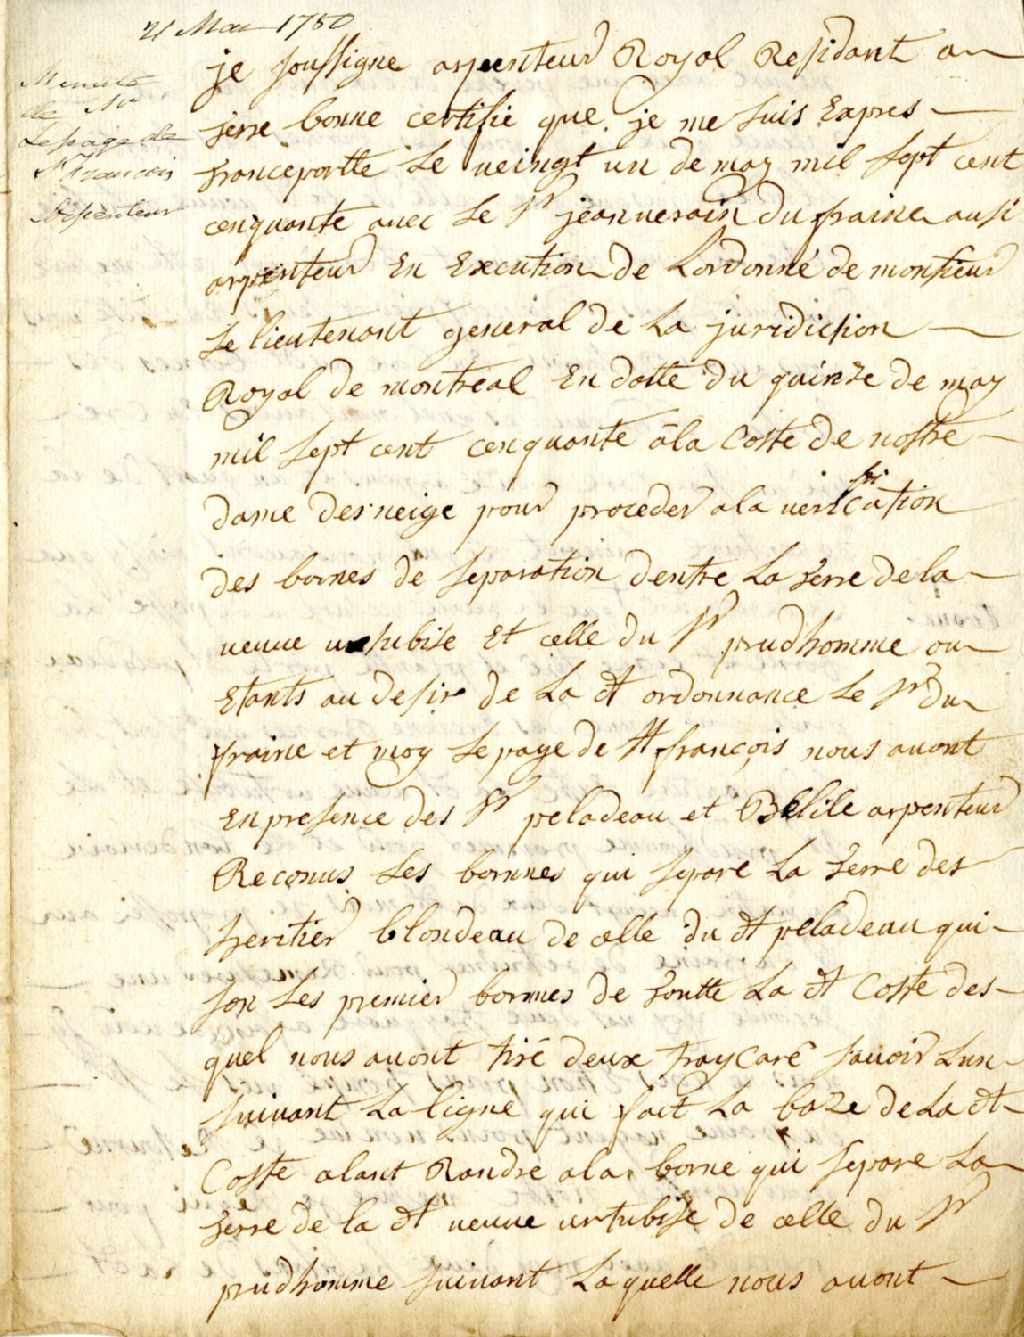 21 Mai 1750
Minute
de Sr
Lepage de
St françois
Arpenteur
je soussigne arpenteur Royol Residant a
terre bonne certifie que je me suis Expres
transportte Le veingt un de may mil sept cent
cenquante avec Le Sr jeanverain du fraine ausi
arpenteur En Execution de Lordonné de monsieur
Le lieutenant general de La juridiction
Royal de montreal En datte du quinze de may
mil sept cent cenquante a la Coste de nostre
dame des neige pour proceder a la verification
des bornes de separation dentre La terre de la
veuve urtubise Et celle du Sr prudhomme ou
Etants au desir de La dt ordonnance Le Sr du
fraine et moy Lepage de St françois nous avont
En presence des Sr peladeau et Belile arpenteur
Reconus Les bornnes qui separe La terre des
heritier blondeau de celle du dt peladeau qui
son Les premier bornnes de toutte La dt Coste des
quel nous avont tiré deux traycaré savoir Lun
suivant La ligne qui fait La baze de La dt
Coste alant Randre a la borne qui separe La
terre de la dt veuve urtubise de celle du Sr
prudhomme suivant Laquelle nous avont